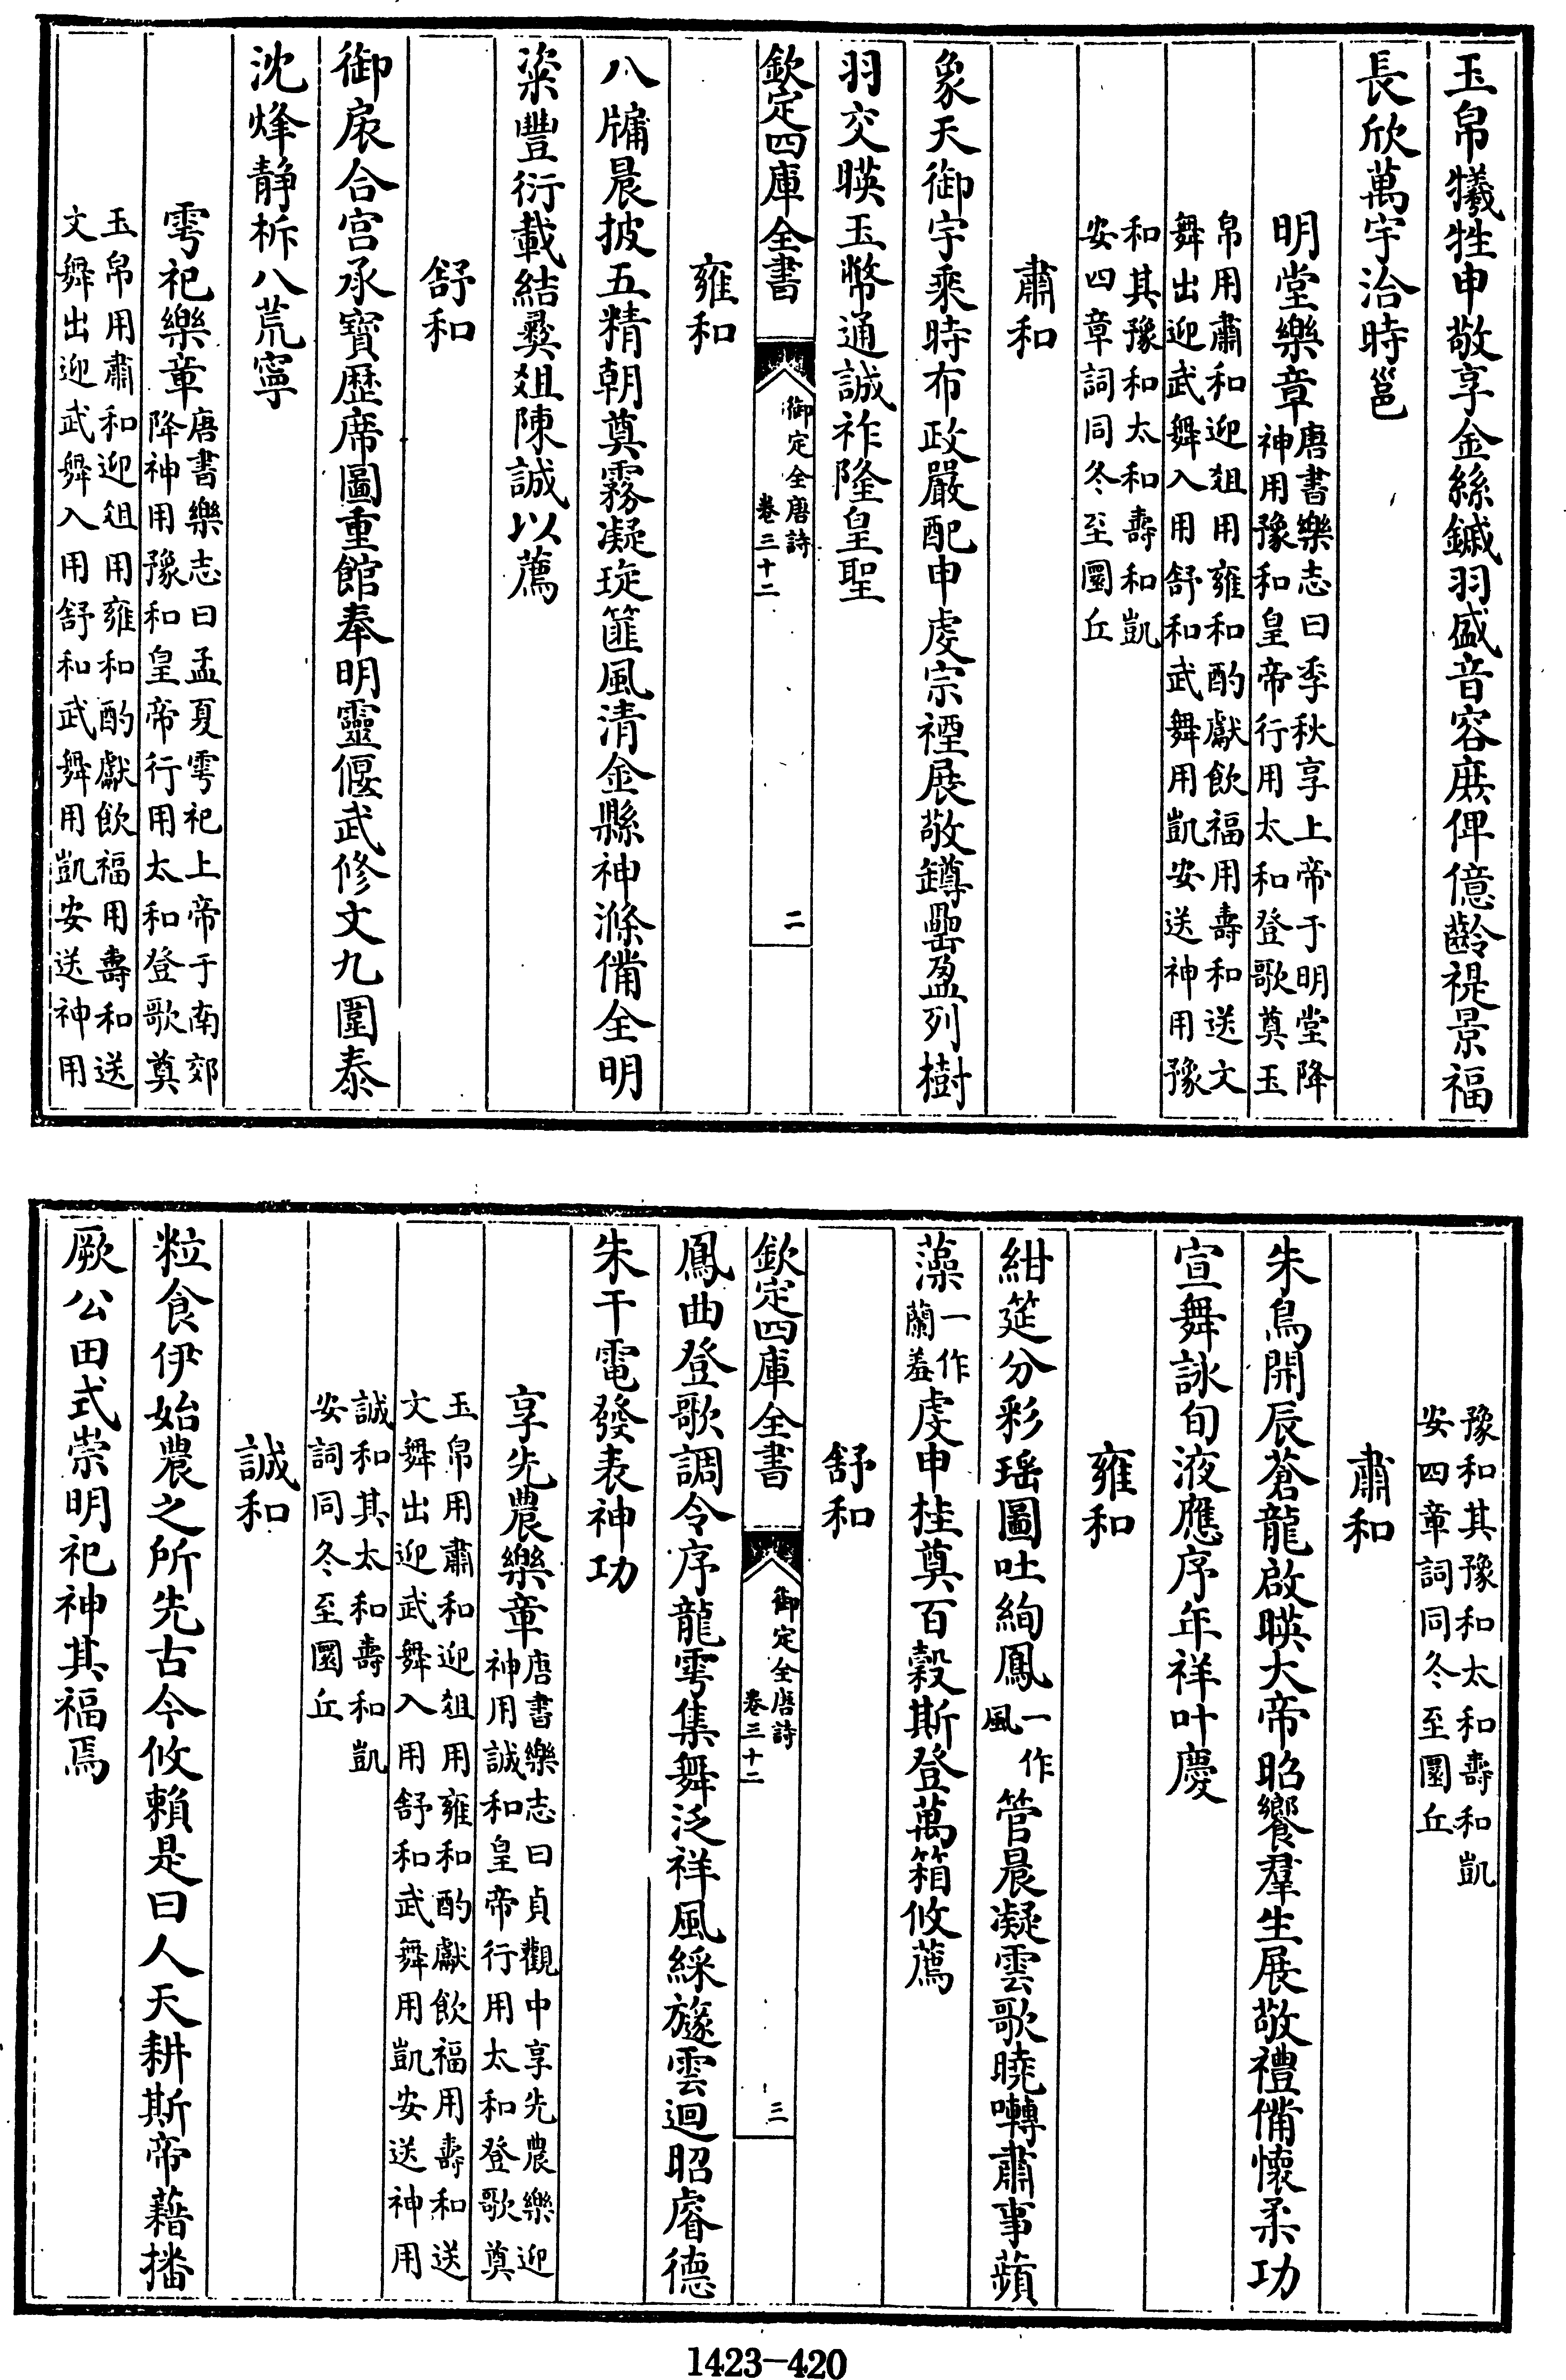 玉帛犧牲申敬享金絲鏚羽盛音容庶俾億齡禔景福
長欣萬宇洽時邕
明堂樂章唐書樂志曰季秋享上帝于明堂降
神用豫和皇帝行用太和登歌奠玉
帛用肅和迎俎用雍和酌獻飲福用壽和送文
舞出迎武舞入用舒和武舞用凱安送神用豫
和其豫和太和壽和凱
安四章詞同冬至圜丘
肅和
象天御宇乘時布政嚴配申虔宗禋展敬罇罍盈列樹
羽交暎玉幣通誠祚隆皇聖
欽定四庫全書
御定全唐詩
卷三十二
二
雍和
八牖晨披五精朝奠霧凝琁篚風清金縣神滌備全明
粢豐衍載結彞俎陳誠以薦
舒和
御扆合宮承寳歴席圖重館奉明靈偃武修文九圍泰
沈烽静柝八荒寧
雩祀樂章唐書樂志曰孟夏雩祀上帝于南郊
降神用豫和皇帝行用太和登歌奠
玉帛用肅和迎俎用雍和酌獻飲福用壽和送
文舞出迎武舞入用舒和武舞用凱安送神用
豫和其豫和太和壽和凱
安四章詞同冬至圜丘
肅和
朱鳥開辰蒼龍啟暎大帝昭饗羣生展敬禮備懷柔功
宣舞詠旬液應序年祥叶慶
雍和
紺筵分彩瑶圖吐絢鳳一作
風管晨凝雲歌曉囀肅事蘋
藻一作
蘭羞虔申桂奠百穀斯登萬箱攸薦
舒和
欽定四庫全書
御定全唐詩
卷三十二
三
鳳曲登歌調令序龍雩集舞泛祥風綵旞雲迴昭睿德
朱干電發表神功
享先農樂章唐書樂志曰貞觀中享先農樂迎
神用諴和皇帝行用太和登歌奠
玉帛用肅和迎俎用雍和酌獻飲福用壽和送
文舞出迎武舞入用舒和武舞用凱安送神用
諴和其太和壽和凱
安詞同冬至圜丘
諴和
粒食伊始農之所先古今攸賴是曰人天耕斯帝藉播
厥公田式崇明祀神其福焉
1423-420